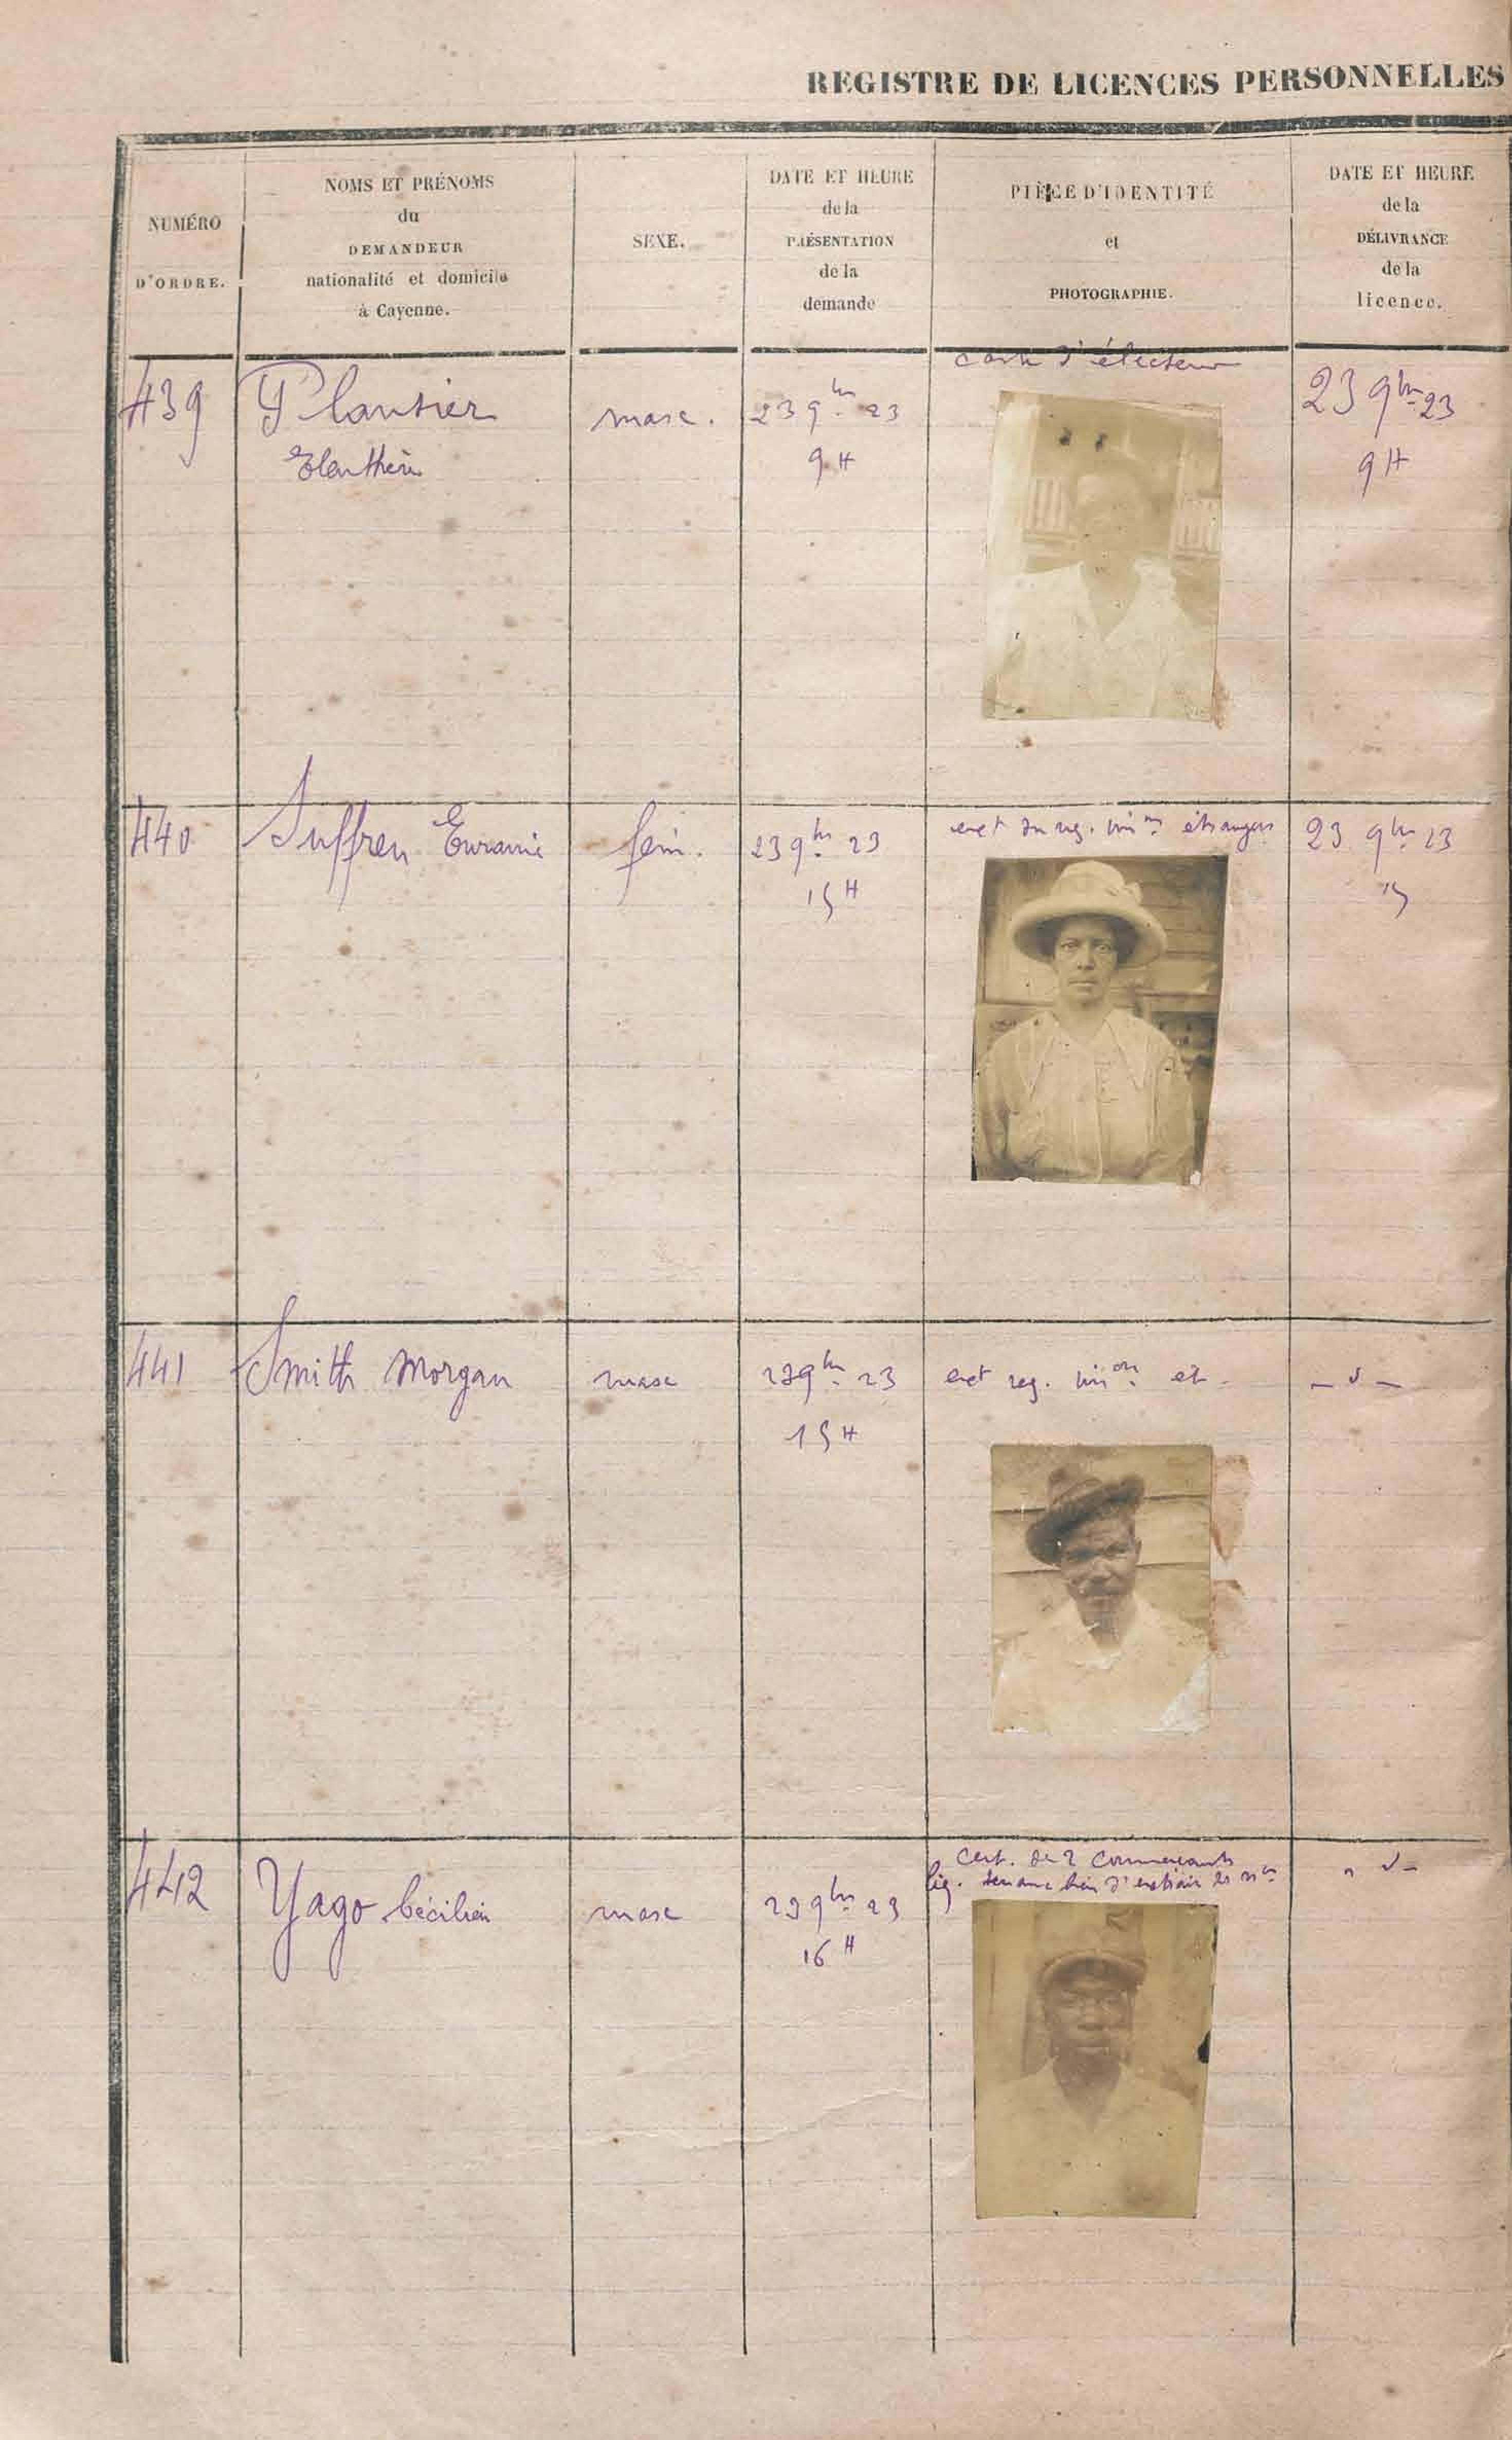 REGISTRE DE LICENCES PERSONNELLES
NUMÉRO
D'ORDRE.
NOMS ET PRÉNOMS
du
DEMANDEUR
nationalité et domicile
à Cayenne.
SEXE.
DATE ET HEURE
de la
PRÉSENTATION
de la
demande
PIÈCE D'IDENTITÉ
et
PHOTOGRAPHIE.
DATE ET HEURE
de la
DÉLIVRANCE
de la
licence.
439
Plantier
masc.
23 9bre 23
9H
carte d'électeur
23 9bre 23
9H
440
Suffren
fém.
23 9bre 23
15H
étrangers
23 9bre 23
15
441
Smith Morgan
masc
23 9bre 23
15H
ext reg. et
442
Yago Cécilien
masc
23 9bre 23
16H
Cert. de 2 commerçants